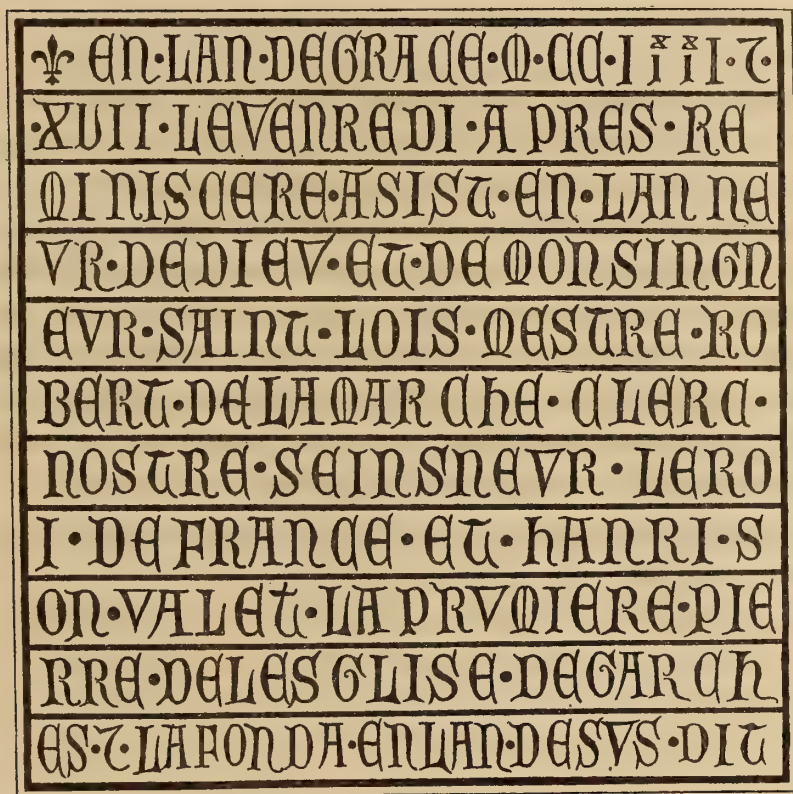 ⚜ EN·LAN·DEGRACE·M·CC·IIII·⁊·
·XVII·LEVENREDI·APRES·RE
MINISCERE·ASIST·EN·LAN NE
VR·DEDIEV·ET·DEMONSINGN
EVR·SAINT·LOIS·MESTRE·RO
BERT·DELAMARCHE·CLERC·
NOSTRE·SEINSNEVR·LERO
I·DEFRANCE·ET·HANRI·S
ON·VALET·LAPRVMIERE·PIE
RRE·DELESGLISE·DEGARCH
ES·⁊·LAFONDA·ENLAN·DESVS·DIT